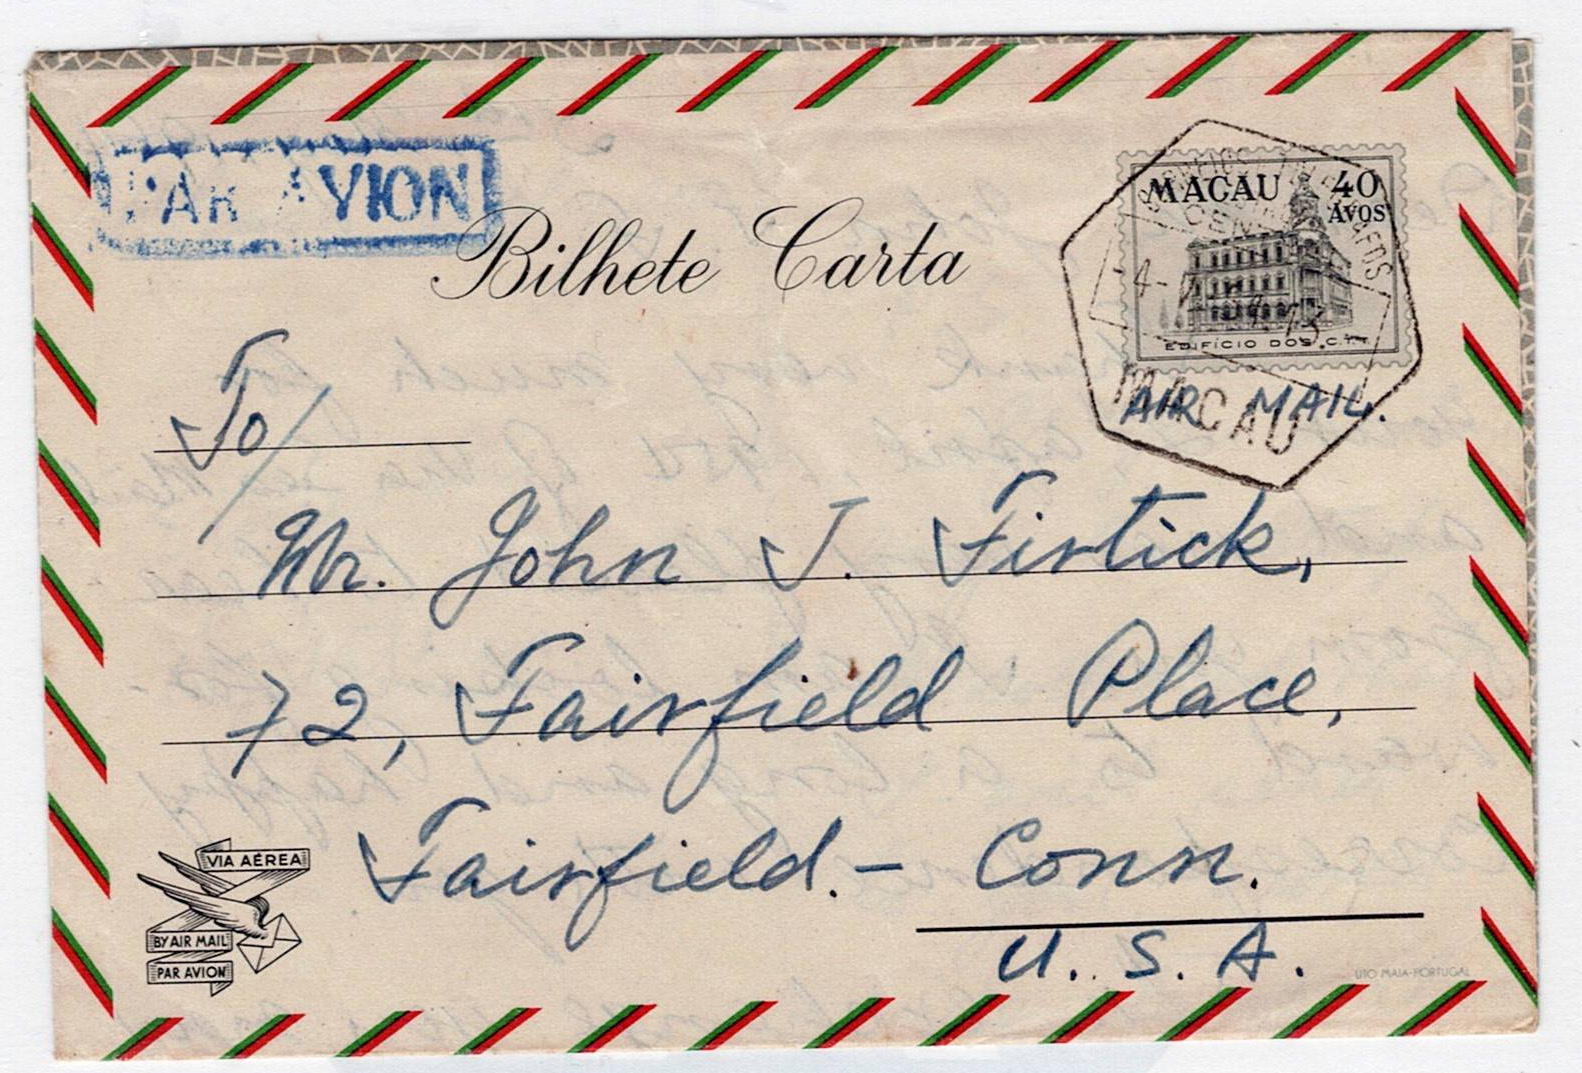 PAR AVION
Bilhete Carta
MACAU 40
AVOS
EDIFÍCIO DOS C.T.T.
MACAU
AIR MAIL.
To/
Mr. John J. Firtick,
72, Fairfield Place,
Fairfield. - Conn.
U. S. A.
VIA AÉREA
BY AIR MAIL
PAR AVION
LITO MAIA-PORTUGAL